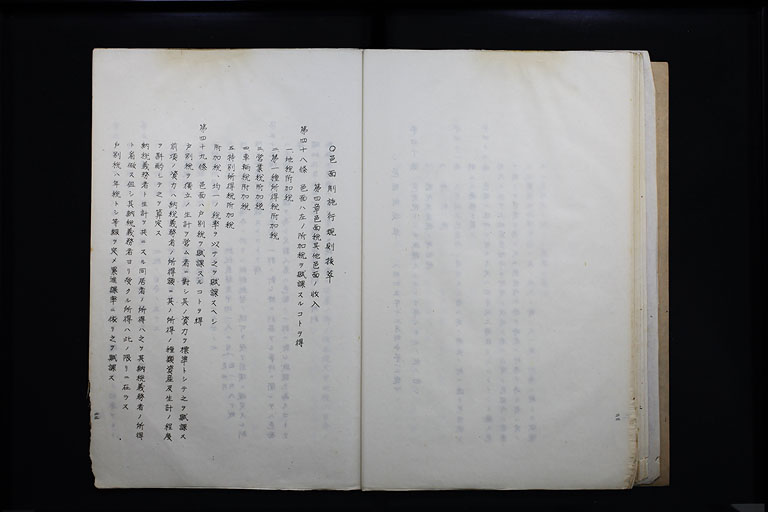 ○邑面制施行規則抜萃
第四章邑面税其他邑面ノ收入
第四十八條 邑面ハ左ノ附加税ヲ賦課スルコトヲ得
一地税附加税
二第一種所得税附加税
三営業税附加税
四車輛税附加税
五特別所得税附加税
附加税ハ均一ノ税率ヲ以テ之ヲ賦課スベシ
第四十九條 邑面ハ戸別税ヲ賦課スルコトヲ得
戸別税ハ獨立ノ生計ヲ営ム者ニ對シ其ノ資力ヲ標準トシテ之ヲ賦課ス
前項ノ資力ハ納税義務者ノ所得額ニ其ノ所得ノ種類資産及生計ノ程度
ヲ斟酌シテ之ヲ算定ス
納税義務者ト生計ヲ共ニスル同居者ノ所得ハ之ヲ其納税義務者ノ所得
ト看做ス但シ其納税義務者ヨリ受クル所得ハ此ノ限リニ在ラス
戸別税ハ年税トシ等級ヲ定メ累進課率ニ依リ之ヲ賦課ス